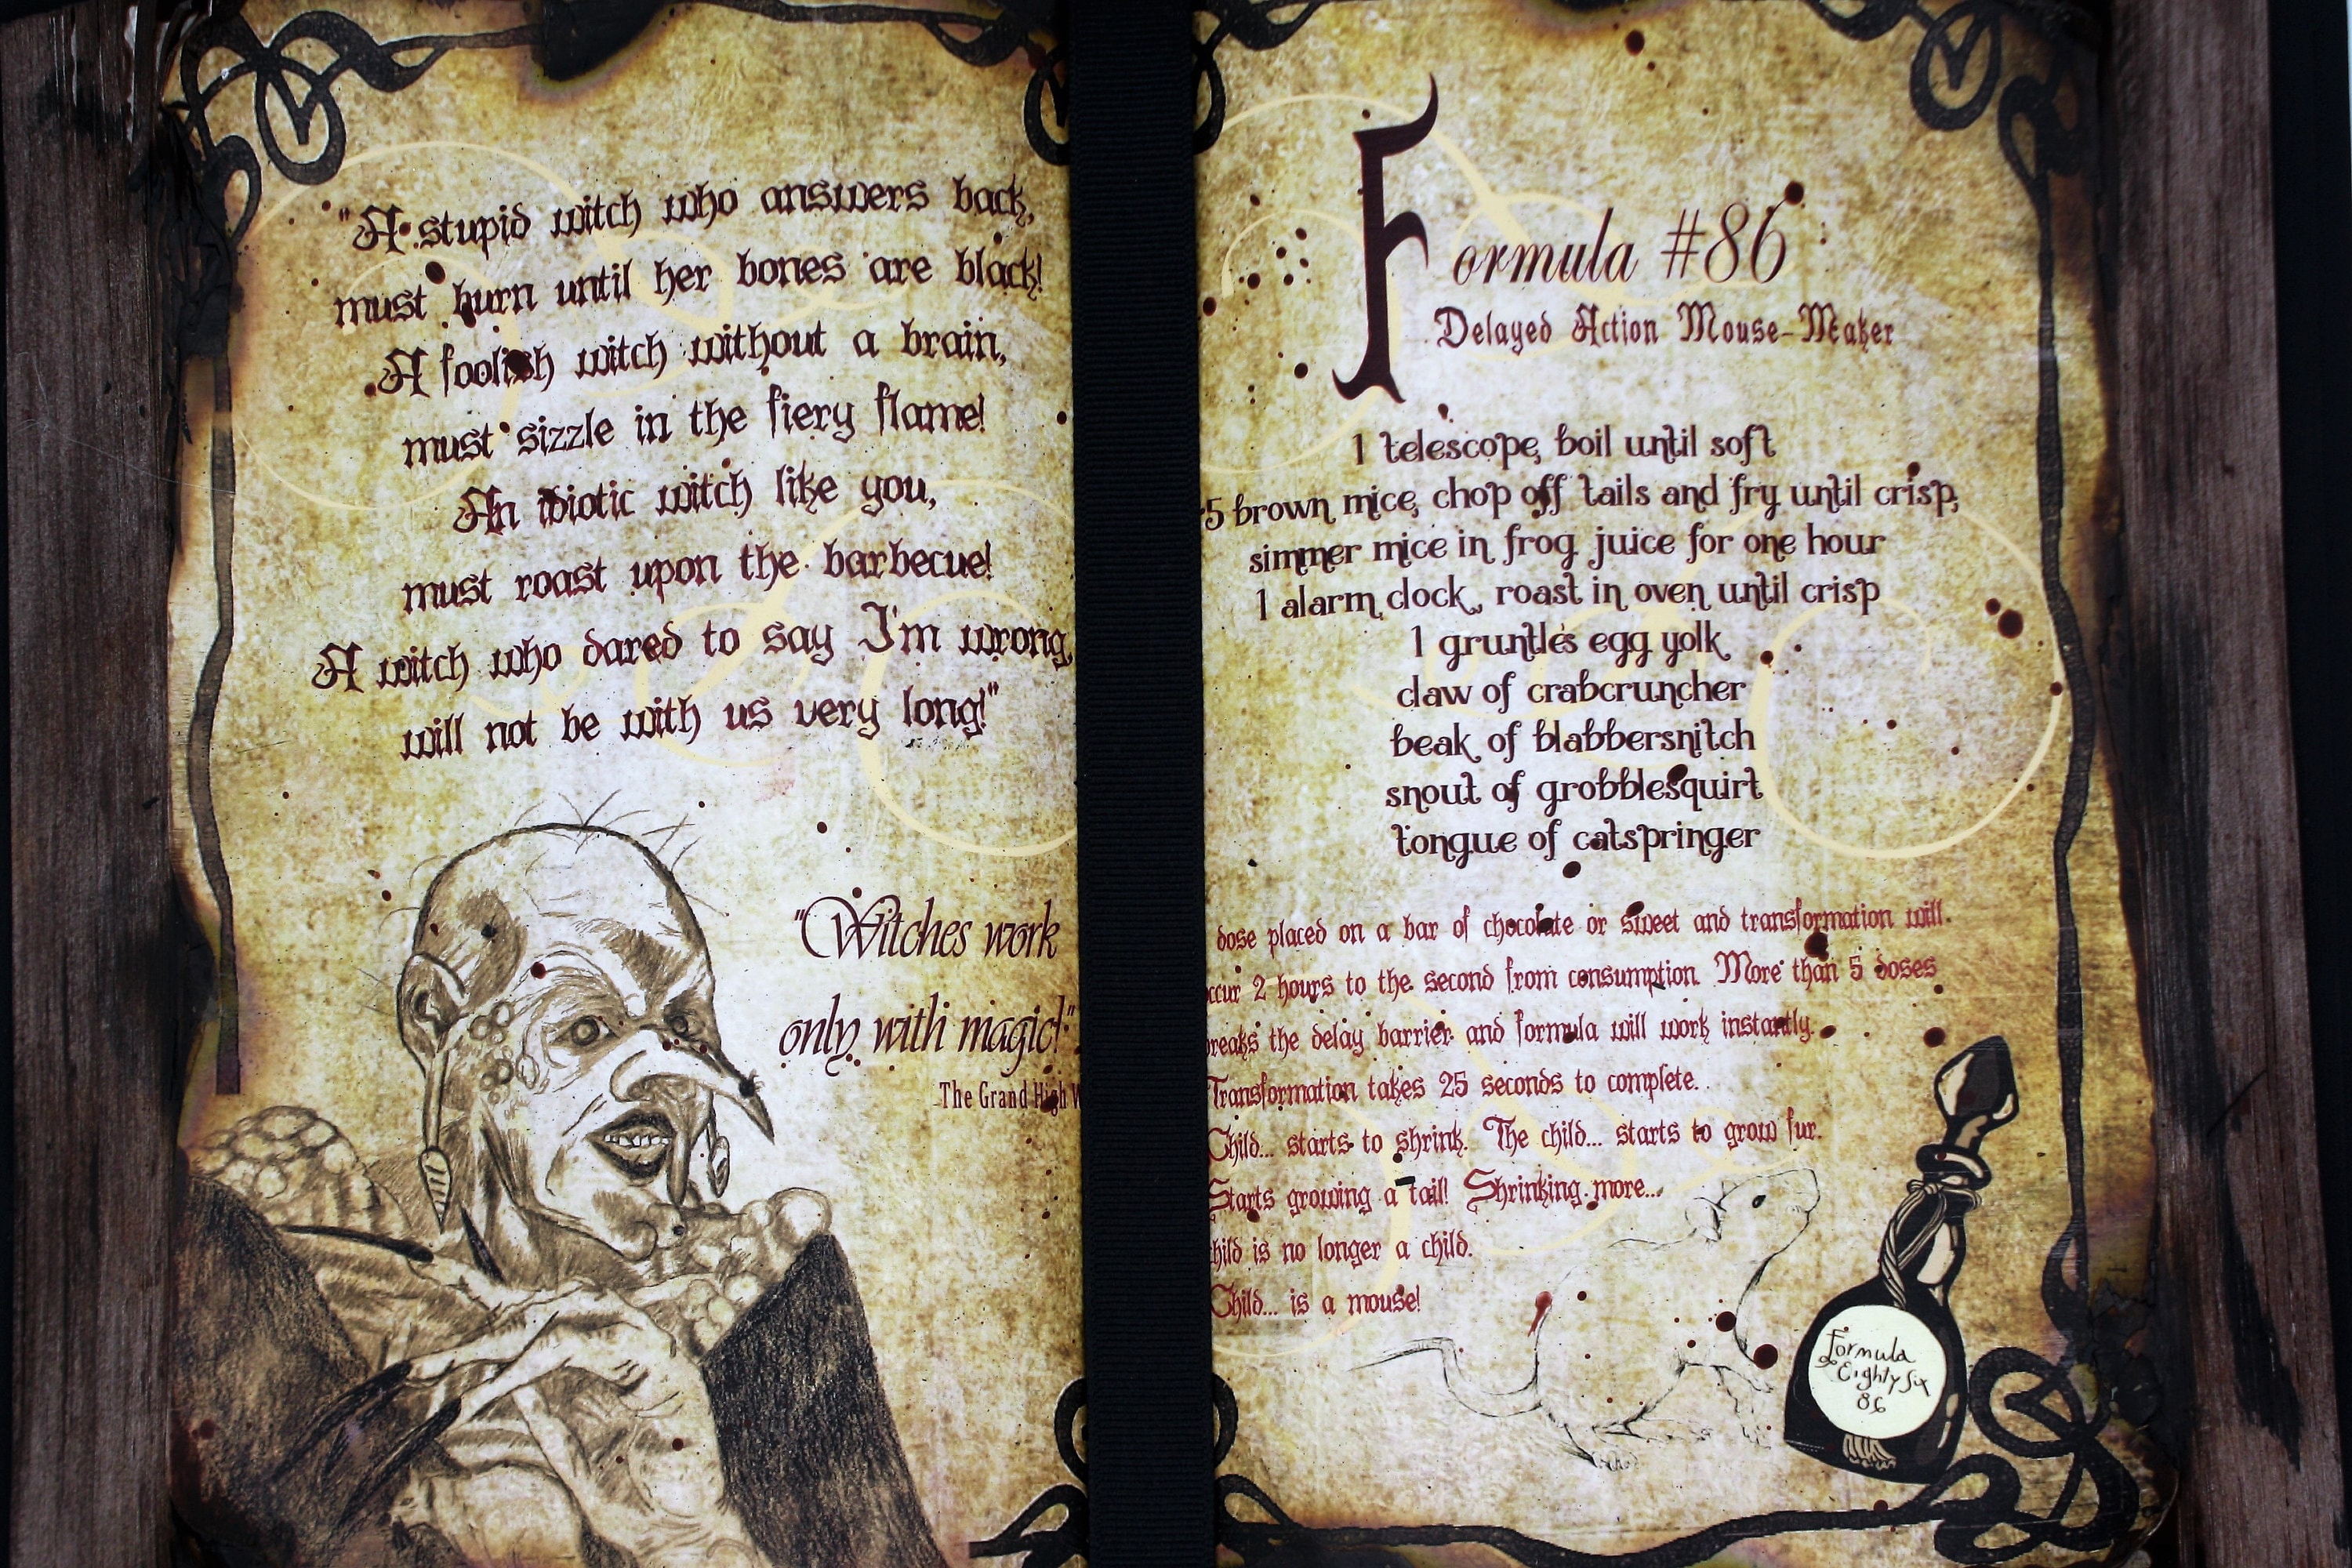 "A stupid witch who answers back,
must burn until her bones are black!
A foolish witch without a brain,
must sizzle in the fiery flame!
An idiotic witch like you,
must roast upon the barbecue!
A witch who dared to say I'm wrong,
will not be with us very long!"
"Witches work
only with magic!"
The Grand High W
Formula #86
Delayed Action Mouse-Maker
1 telescope, boil until soft
45 brown mice, chop off tails and fry until crisp,
simmer mice in frog juice for one hour
1 alarm clock, roast in oven until crisp
1 gruntle's egg yolk
claw of crabcruncher
beak of blabbersnitch
snout of grobblesquirt
tongue of catspringer
dose placed on a bar of chocolate or sweet and transformation will
ccur 2 hours to the second from consumption. More than 5 doses
reaks the delay barrier and formula will work instantly.
Transformation takes 25 seconds to complete.
Child... starts to shrink. The child... starts to grow fur.
Starts growing a tail! Shrinking more...
hild is no longer a child.
Child... is a mouse!
Formula
Eighty Six
86